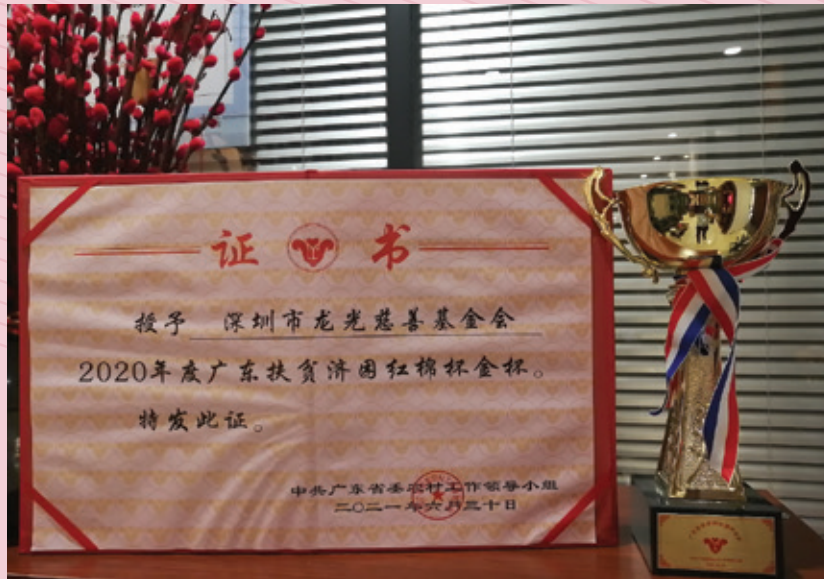 证 书
授予 深圳市龙光慈善基金会
2020年度广东扶贫济困红棉杯金杯。
特发此证。
中共广东省委农村工作领导小组
二〇二一年六月三十日